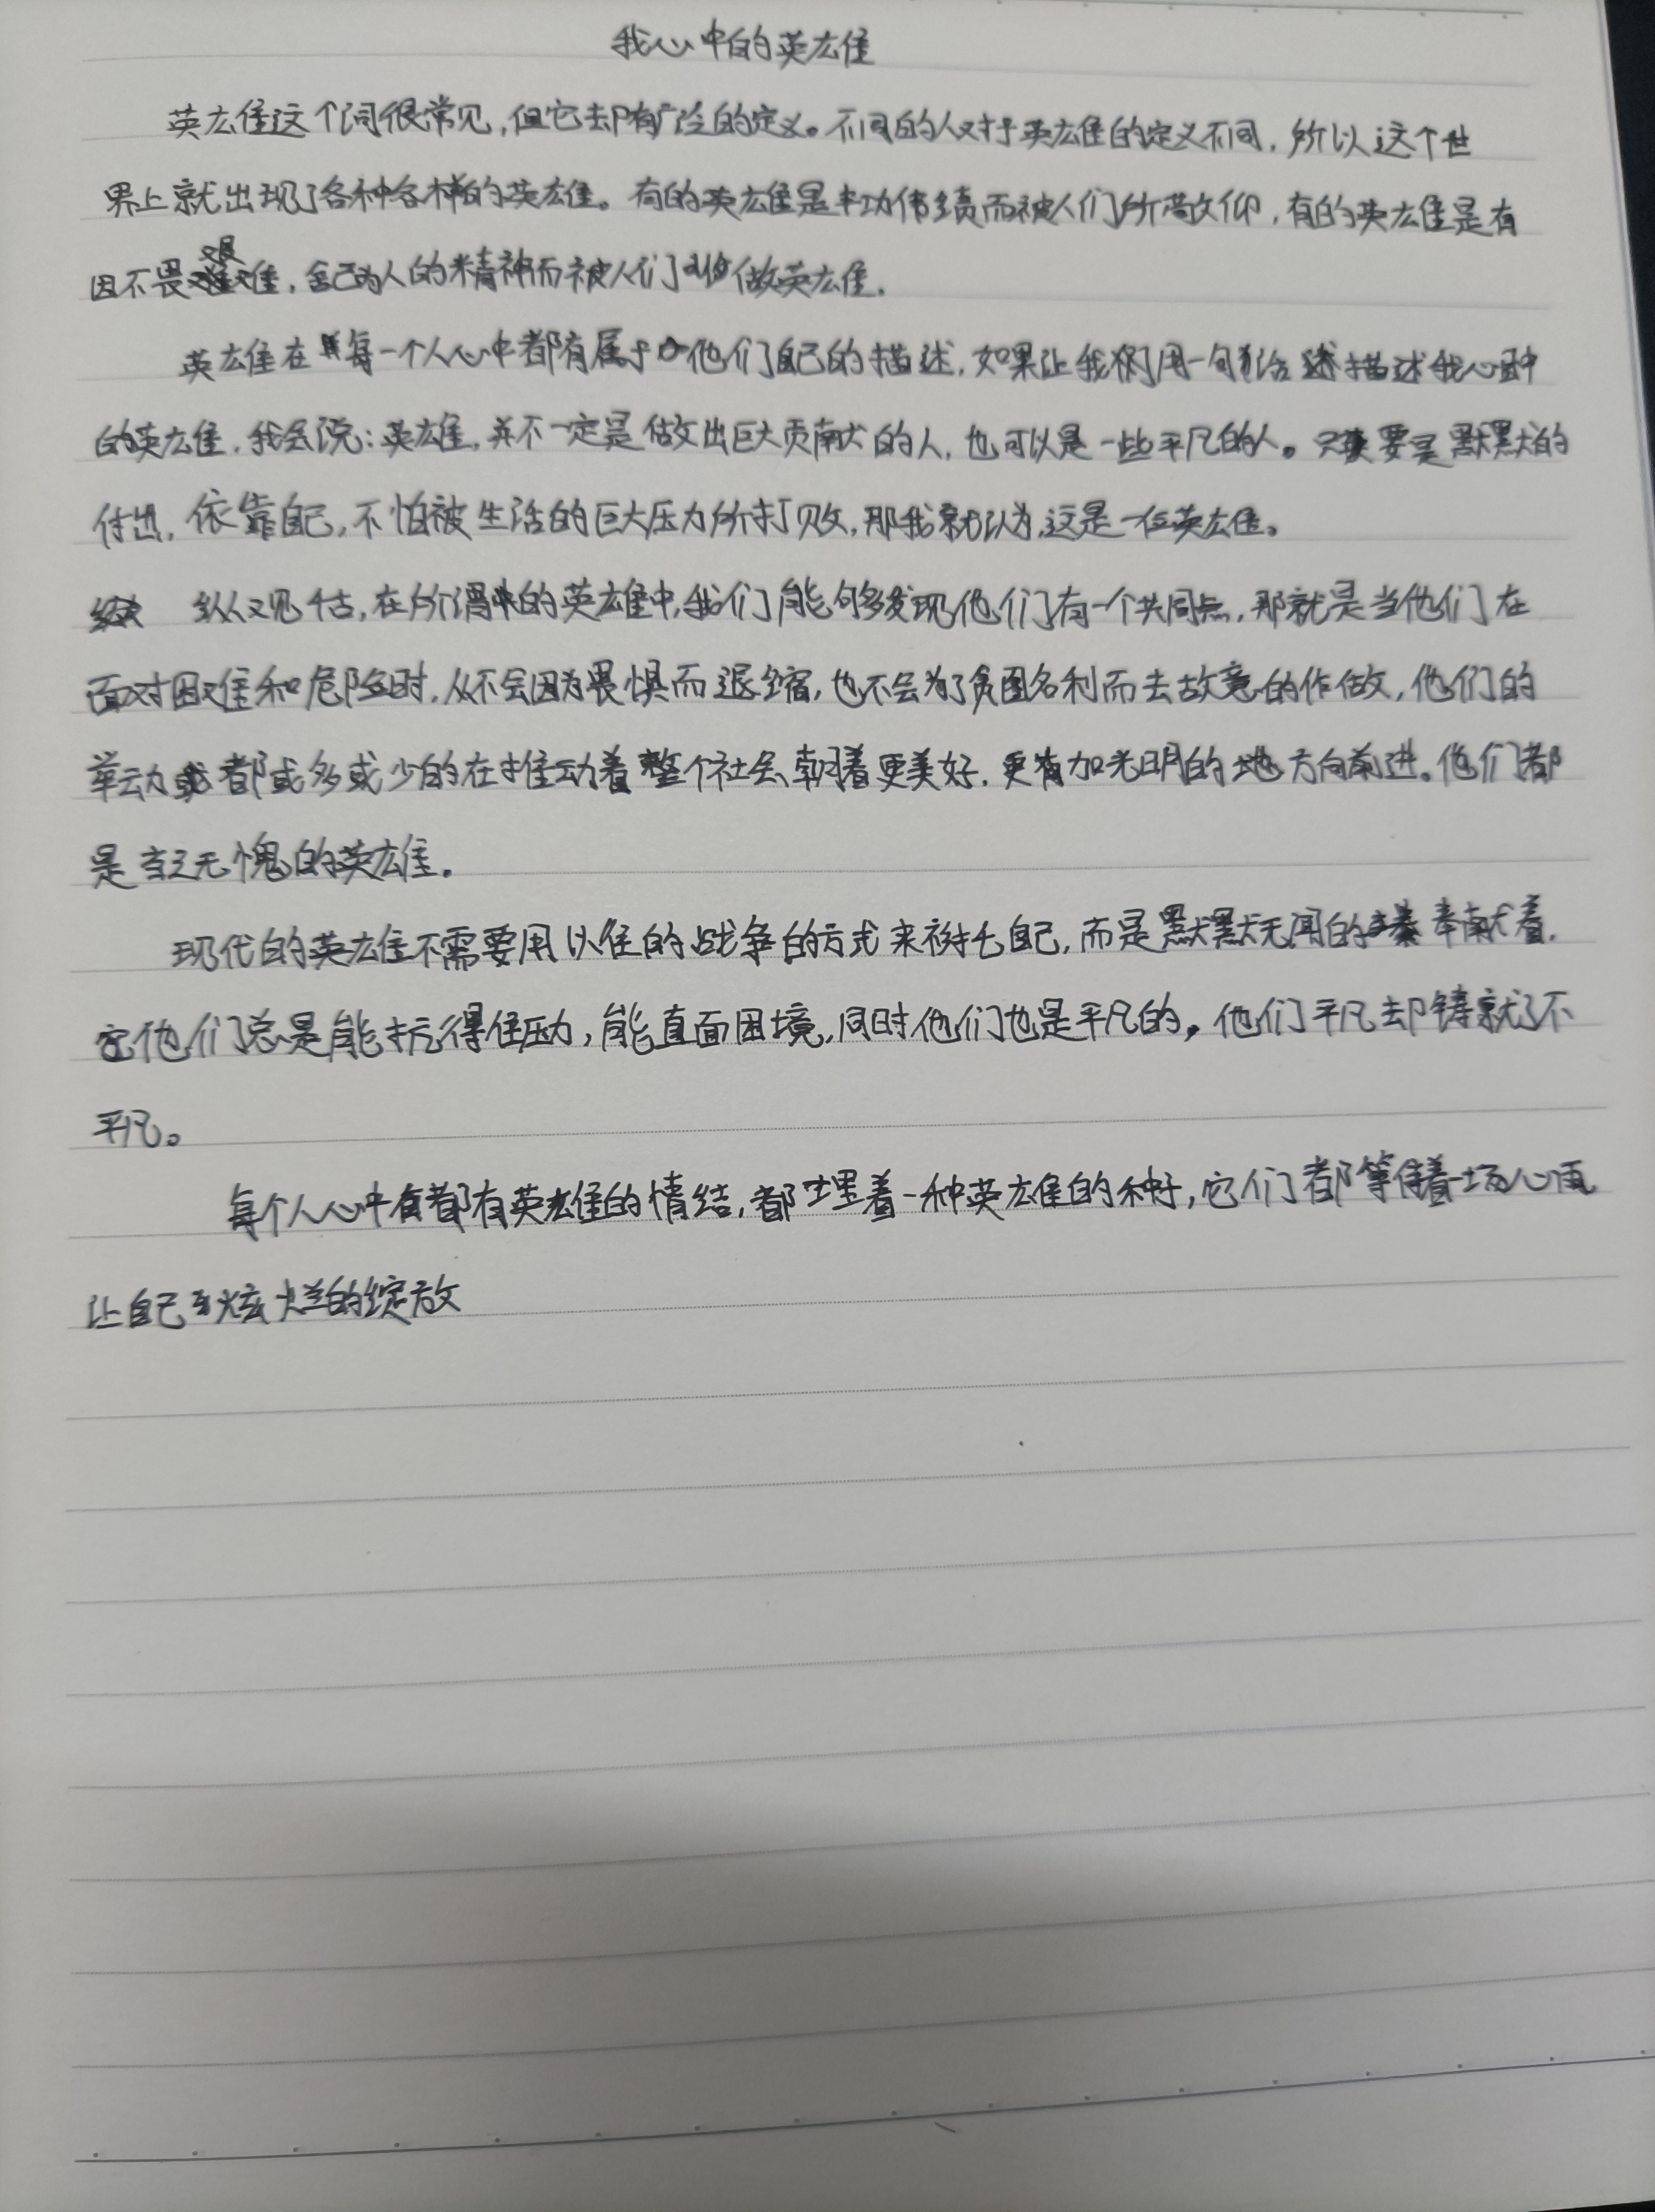 我心中的英雄
英雄这个词很常见,但它却有广泛的定义。不同的人对于英雄的定义不同,所以这个世
界上就出现了各种各样的英雄。有的英雄是丰功伟绩而被人们所敬仰,有的英雄是有
因不畏艰难,舍己为人的精神而被人们叫做英雄.
英雄在每一个人心中都有属于他们自己的描述,如果让我用一句话描述我心中
的英雄,我会说:英雄,并不一定是做出巨大贡献的人,也可以是一些平凡的人。只要是默默的
付出,依靠自己,不怕被生活的巨大压力所打败,那我就认为,这是一位英雄。
纵观千古,在所谓的英雄中,我们能够发现他们有一个共同点,那就是当他们在
面对困难和危险时,从不会因为畏惧而退缩,也不会为了贪图名利而去故意的作做,他们的
举动都或多或少的在推动着整个社会朝着更美好,更加光明的地方向前进。他们都
是当之无愧的英雄.
现代的英雄不需要用以往的战争的方式来衬托自己,而是默默无闻的奉献着,
他们总是能抗得住压力,能直面困境,同时他们也是平凡的,他们平凡却铸就了不
平凡。
每个人心中都有英雄的情结,都埋着一种英雄的种子,它们都等待着一场心雨
让自己炫烂的绽放